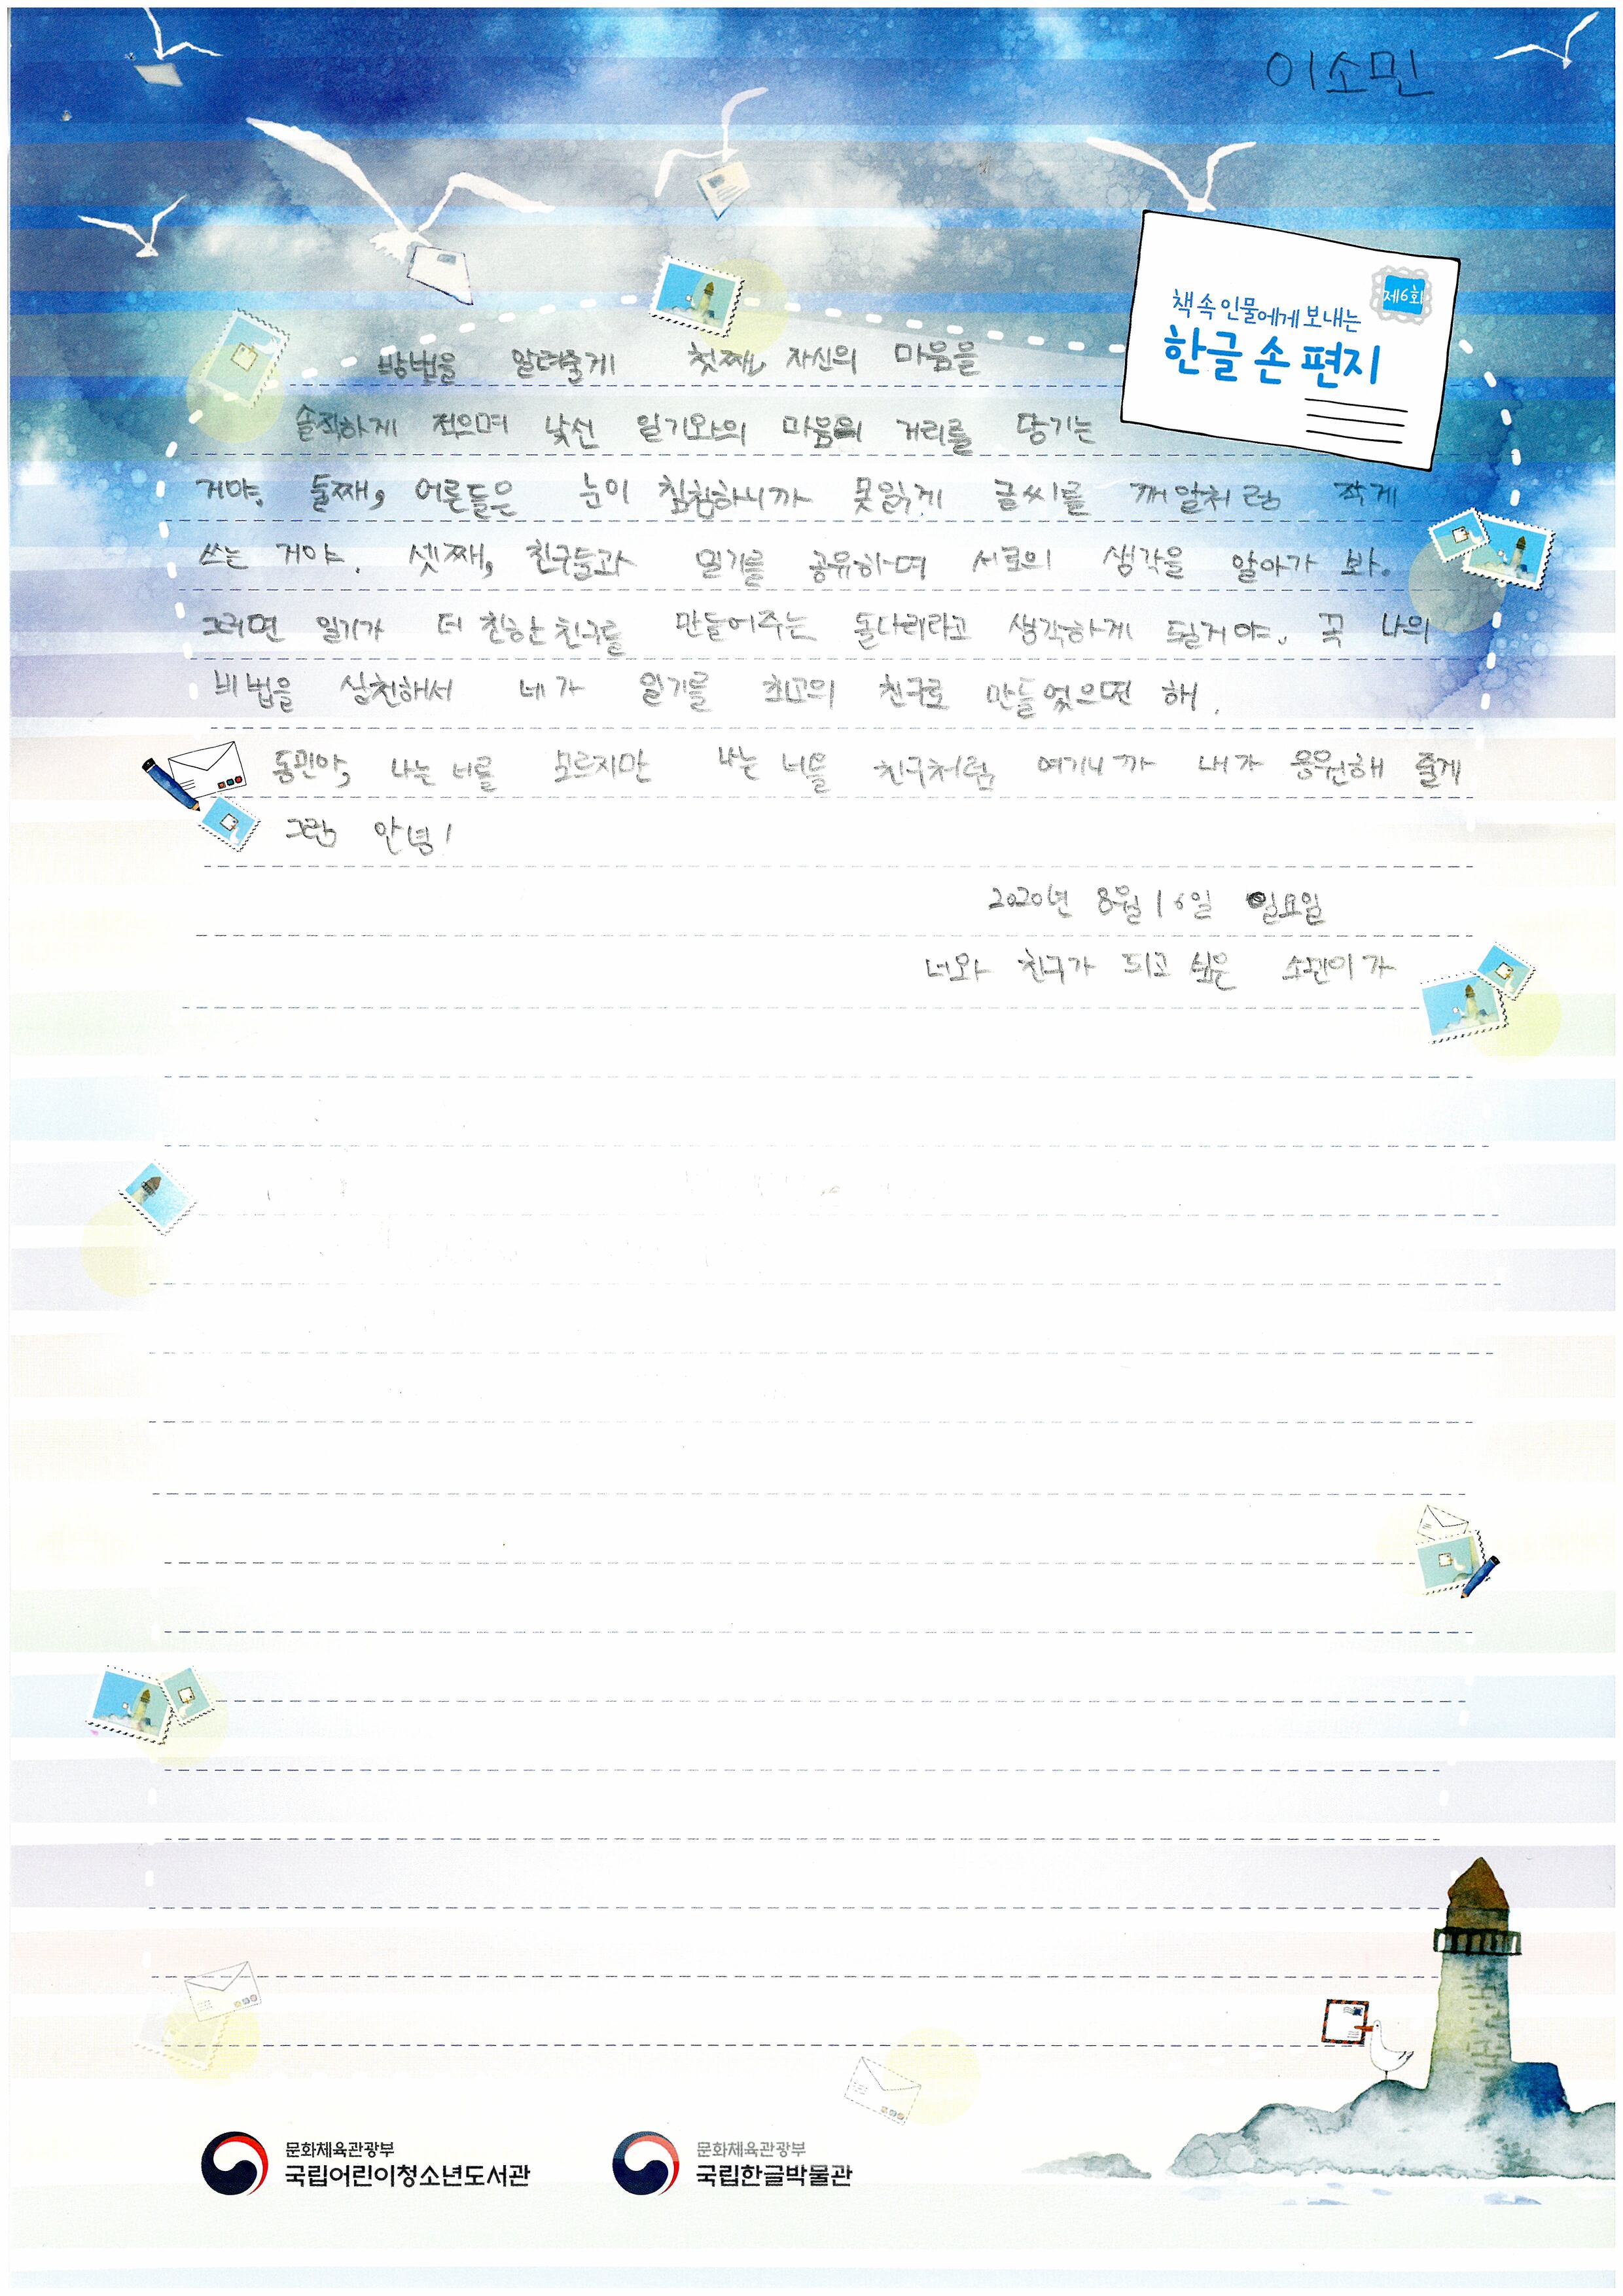 이소민
제6회
책 속 인물에게 보내는
한글 손 편지
방법을 알려줄게 첫째, 자신의 마음을
솔직하게 적으며 낯선 일기와의 마음의 거리를 당기는
거야. 둘째, 어른들은 눈이 침침하니까 못읽게 글씨를 깨알처럼 작게
쓰는 거야. 셋째, 친구들과 일기를 공유하며 서로의 생각을 알아가 봐.
그러면 일기가 더 친한 친구를 만들어주는 돌다리라고 생각하게 될거야. 꼭 나의
비법을 실천해서 네가 일기를 최고의 친구로 만들었으면 해.
동관아, 나는 너를 모르지만 나는 너를 친구처럼 여기니까 내가 응원해 줄게
그럼 안녕!
2020년 8월 16일 일요일
너와 친구가 되고 싶은 소민이가
문화체육관광부
국립어린이청소년도서관
문화체육관광부
국립한글박물관